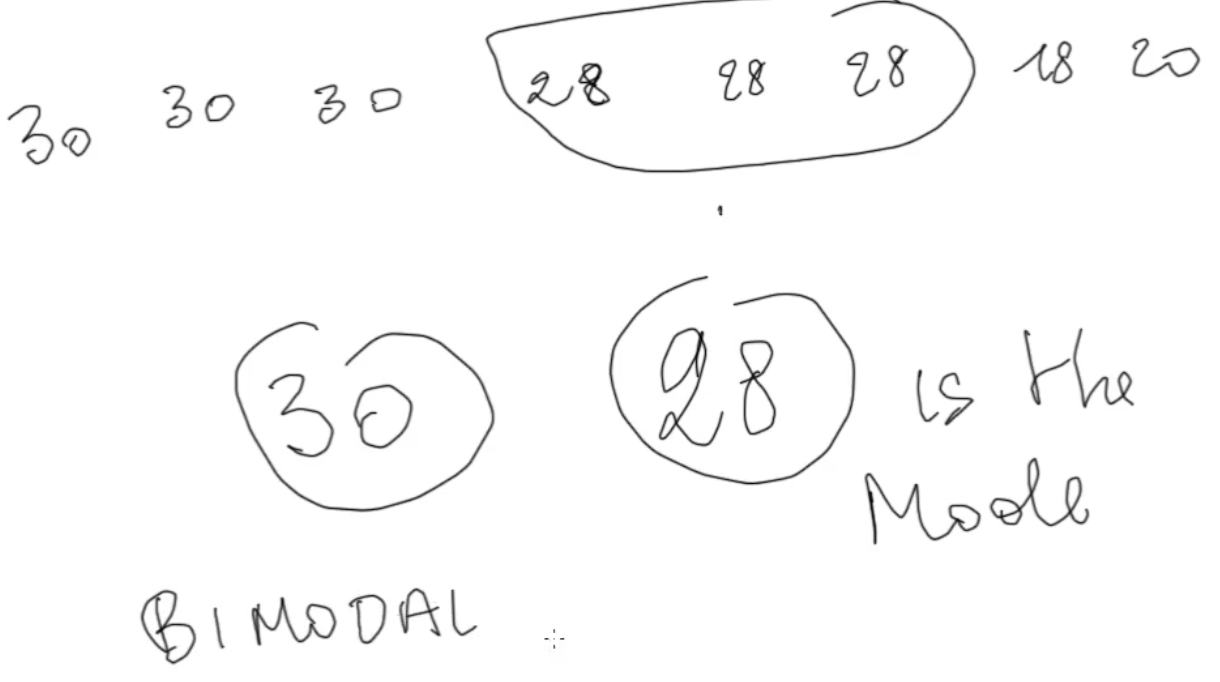 30 30 30 28 28 28 18 20
30 28 is the
Mode
BIMODAL